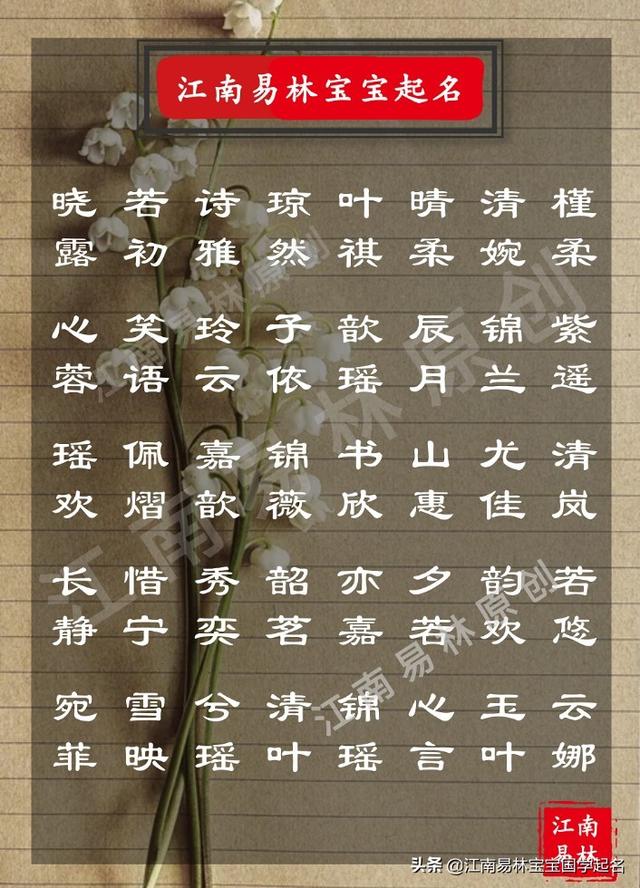 江南易林宝宝起名
晓若诗琼叶晴清槿
露初雅然祺柔婉柔
心笑玲子歆辰锦紫
蓉语云依瑶月兰遥
瑶佩嘉锦书山尤清
欢熠歆薇欣惠佳岚
长惜秀韶亦夕韵若
静宁奕茗嘉若欢悠
宛雪兮清锦心玉云
菲映瑶叶瑶言叶娜
江南易林原创
江南易林原创
江南易林原创
江南
易林
头条 @江南易林宝宝国学起名